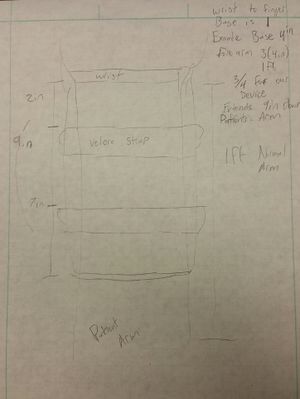 wrist to finger
Base is 1
Example Base 4in
Fore arm 3(4in)
1ft
3/4 For our
Device
Extends 9in Down
Patients Arm
1ft Normal
Arm
wrist
2in
9in
Velcro Strap
7in
Patient
Arm